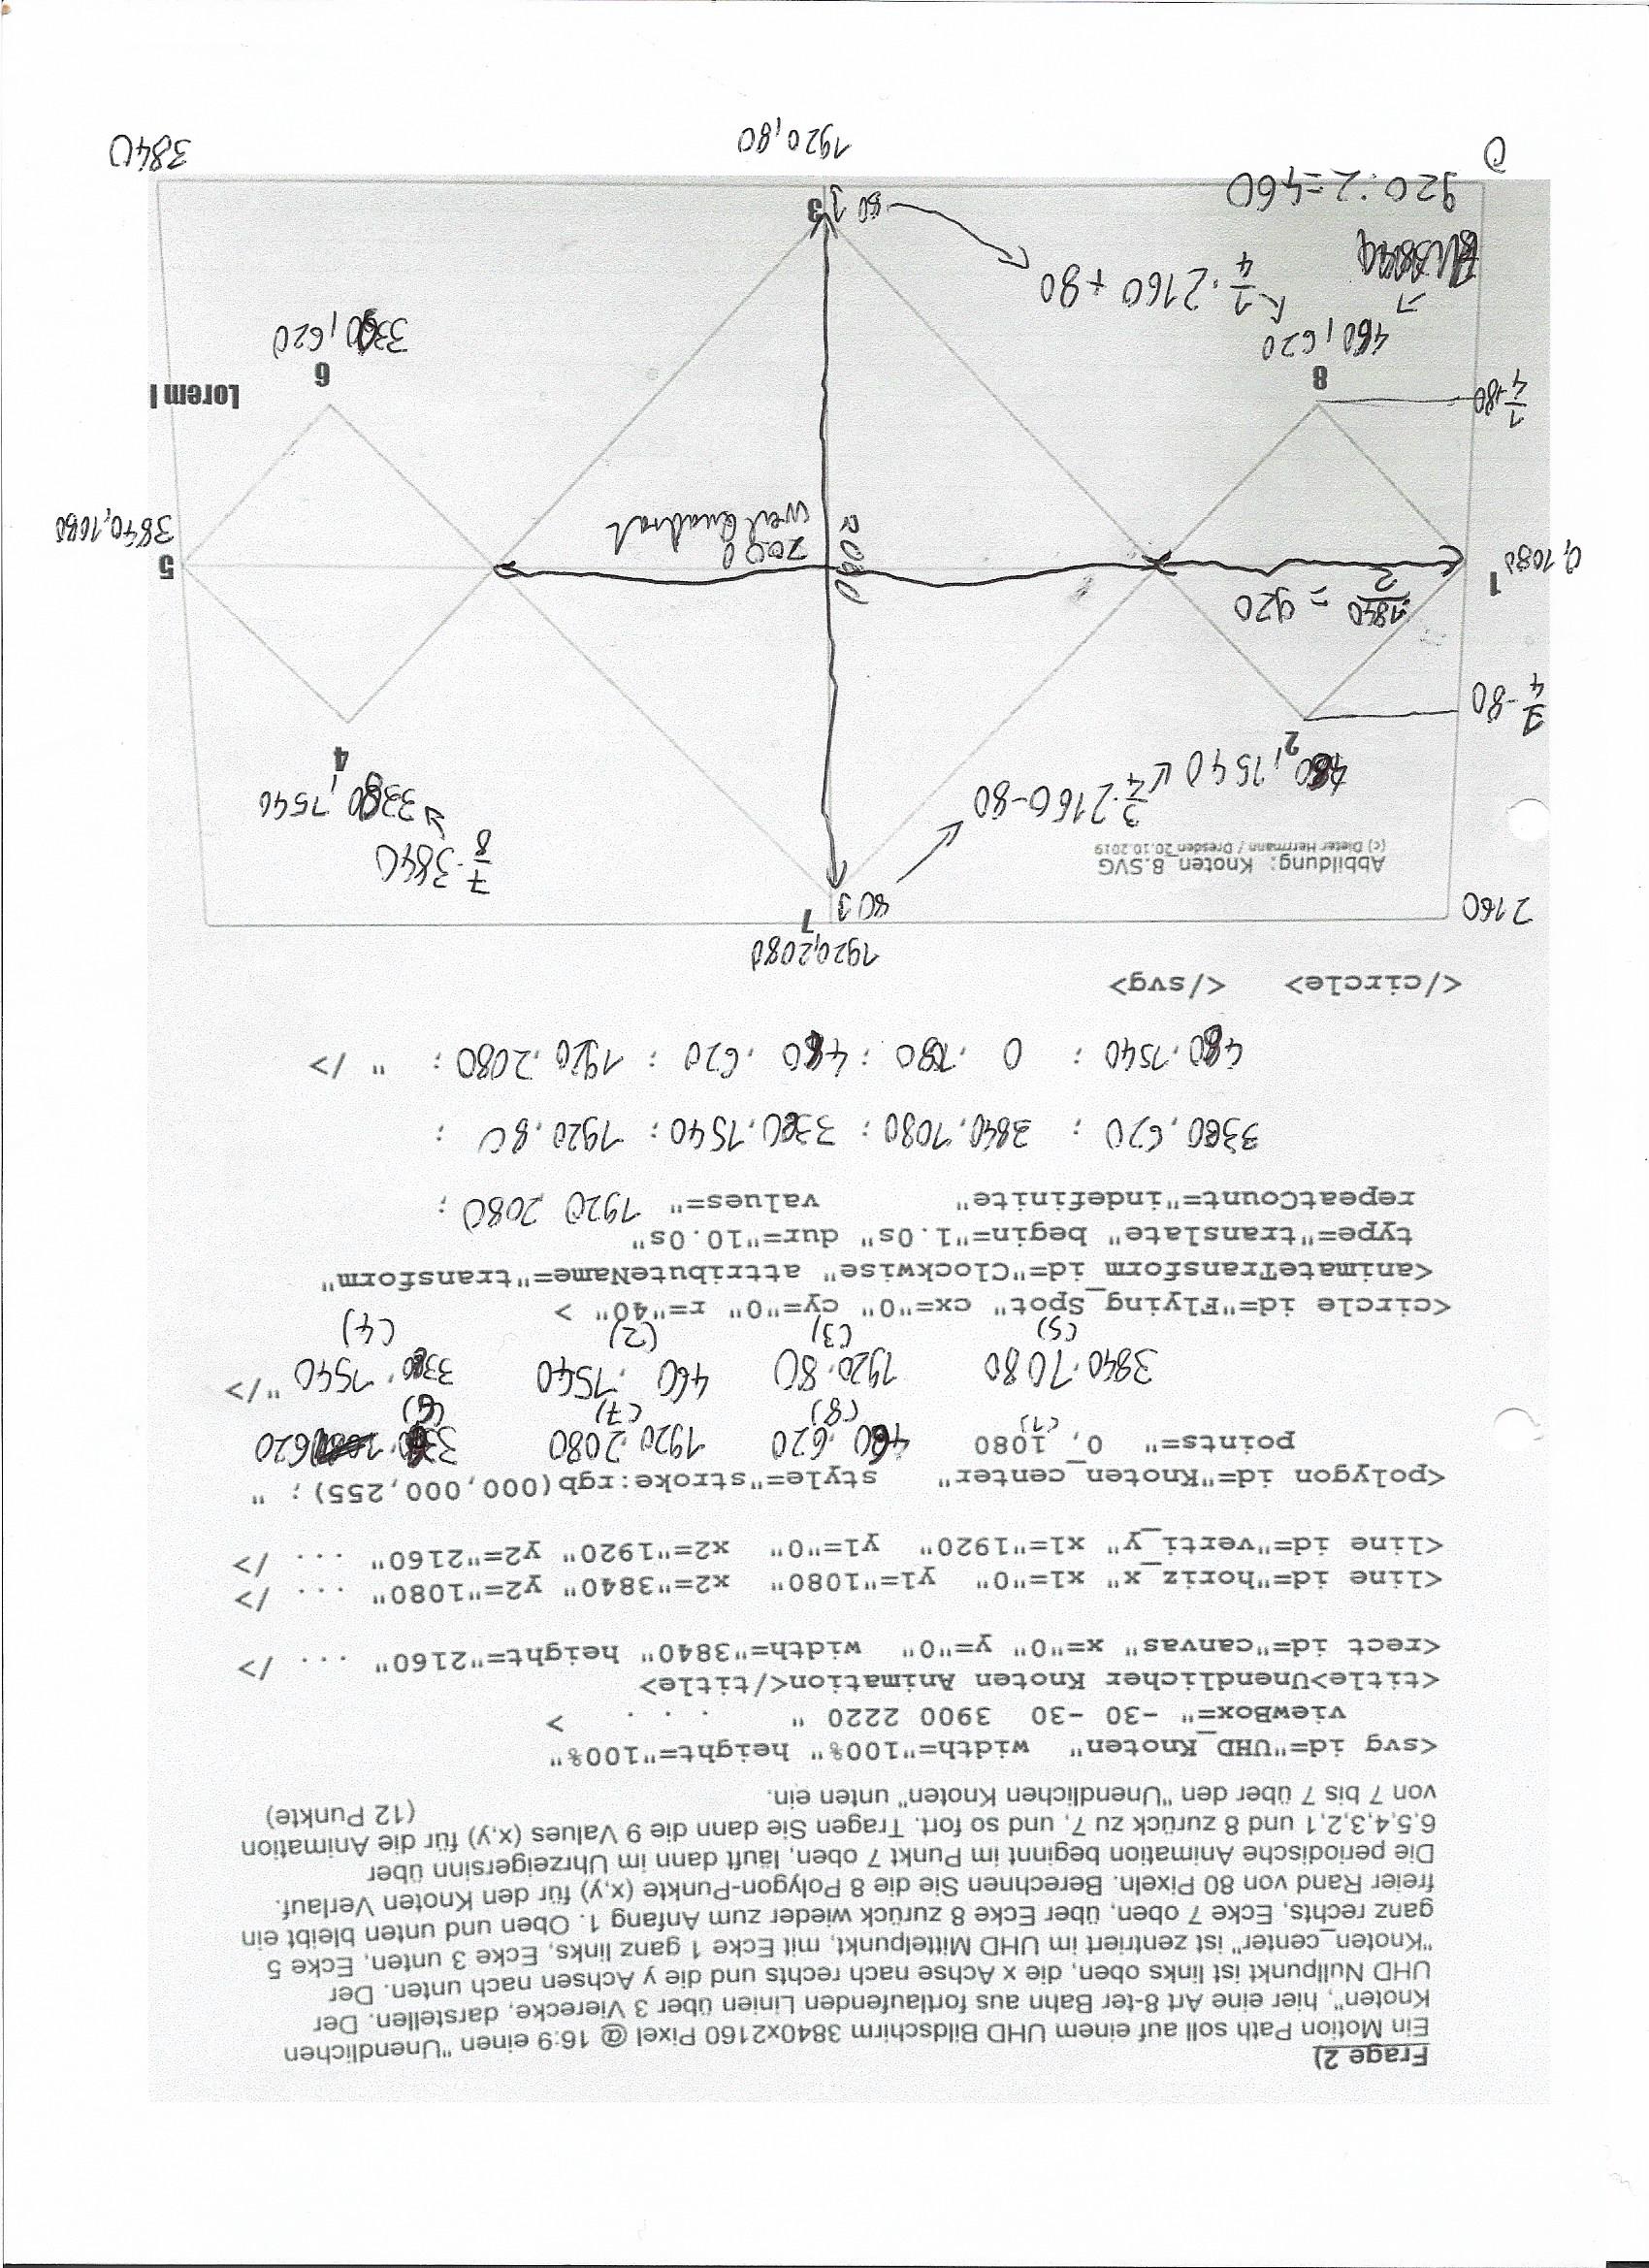 Frage 2)
Ein Motion Path soll auf einem UHD Bildschirm 3840x2160 Pixel @ 16:9 einen "Unendlichen
Knoten", hier eine Art 8-ter Bahn aus fortlaufenden Linien über 3 Vierecke, darstellen. Der
UHD Nullpunkt ist links oben, die x Achse nach rechts und die y Achsen nach unten. Der
"Knoten_center" ist zentriert im UHD Mittelpunkt, mit Ecke 1 ganz links, Ecke 3 unten, Ecke 5
ganz rechts, Ecke 7 oben, über Ecke 8 zurück wieder zum Anfang 1. Oben und unten bleibt ein
freier Rand von 80 Pixeln. Berechnen Sie die 8 Polygon-Punkte (x,y) für den Knoten Verlauf.
Die periodische Animation beginnt im Punkt 7 oben, läuft dann im Uhrzeigersinn über
6,5,4,3,2,1 und 8 zurück zu 7, und so fort. Tragen Sie dann die 9 Values (x,y) für die Animation
von 7 bis 7 über den "Unendlichen Knoten" unten ein. (12 Punkte)
<svg id="UHD_Knoten" width="100%" height="100%"
viewBox=" -30 -30 3900 2220 " . . . >
<title>Unendlicher Knoten Animation</title>
<rect id="canvas" x="0" y="0" width="3840" height="2160" ... />
<line id="horiz_x" x1="0" y1="1080" x2="3840" y2="1080" ... />
<line id="verti_y" x1="1920" y1="0" x2="1920" y2="2160" ... />
<polygon id="Knoten_center" style="stroke:rgb(000,000,255); "
points=" 0, 1080 460,620 1920,2080 620
(1) (8) (7) (6)
3840,1080 1920,80 460,1540 3380,1540 "/>
(5) (3) (2) (4)
<circle id="Flying_Spot" cx="0" cy="0" r="40" >
<animateTransform id="Clockwise" attributeName="transform"
type="translate" begin="1.0s" dur="10.0s"
repeatCount="indefinite" values=" 1920,2080 ;
3380,620 ; 3840,1080 ; 3380,1540 ; 1920,80 ;
460,1540 ; 0 , ; 460,620 ; 1920,2080 ; " />
</circle> </svg>
1920,2080
2160 80 7
Abbildung: Knoten_8.SVG
(c) Dieter Herrmann / Dresden 20.10.2019
7/8 · 3840
3/4 · 2160-80
3380,1540
460,1540
2 4
-80
1840/2 = 920
1 0,1080
5
3840,1080
2080
2000
weil Quadrat
1/4 +80
Lorem I
8 6
460,620 3380,620
1/4 · 2160 + 80
80 3
920:2=460
0 1920,80 3840